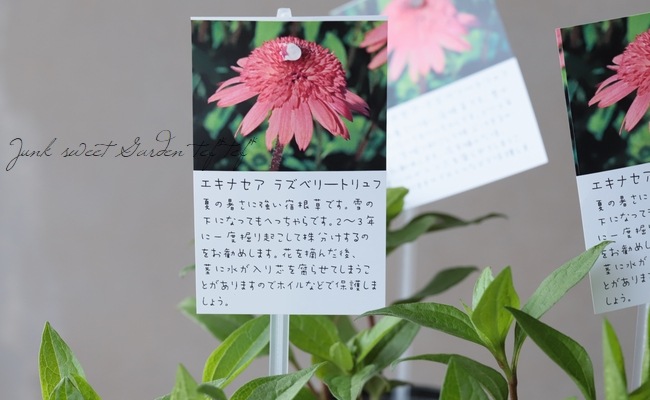 Junk sweet Garden tef*tef*
エキナセア ラズベリートリュフ
夏の暑さに強い宿根草です。雪の
下になってもへっちゃらです。2～3年
に一度掘り起こして株分けするの
をお勧めします。花を摘んだ後、
茎に水が入り芯を腐らせてしまうこ
とがありますのでホイルなどで保護しま
しょう。
エキナセア ラ
夏の暑さに
下になっても
に一度掘り
をお勧めし
茎に水が
とがあります
しょう。